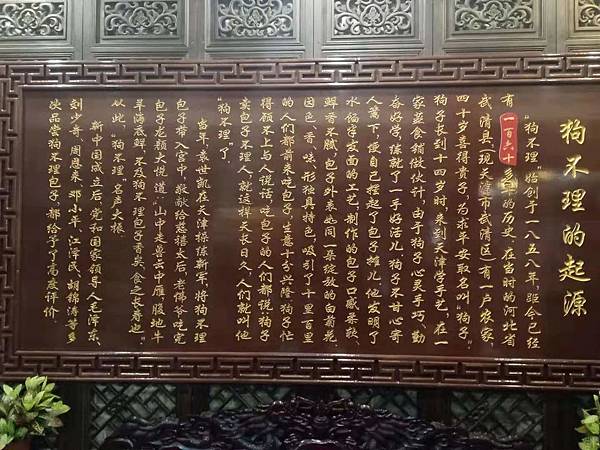 狗不理的起源
“狗不理”始创于一八五八年，距今已经
有一百六十多年的历史。在当时的河北省
武清县（现天津市武清区）有一户农家，
四十岁喜得贵子，为求平安取名叫“狗子”，
狗子长到十四岁时来到天津学手艺，在一
家蒸食铺做伙计，由于狗子心灵手巧、勤
奋好学，练就了一手好活儿，狗子不甘心寄
人篱下，便自己摆起了包子摊儿，他发明了
水馅半发面的工艺，制作的包子口感柔软，
鲜香不腻，包子外表如同一朵绽放的白菊花，
因色、香、味、形独具特色，吸引了十里百里
的人们都前来吃包子，生意十分兴隆，狗子忙
得顾不上与人说话，吃包子的人们都说：狗子
卖包子不理人，就这样天长日久，人们就叫他
“狗不理”了。
当年，袁世凯在天津操练新军，将狗不理
包子带入宫中，敬献给慈禧太后，老佛爷吃完
包子龙颜大悦道：“山中走兽云中雁，腹地牛
羊海底鲜，不及狗不理包子香矣，食之长寿也”。
从此，狗不理，名声大振。
新中国成立后，党和国家领导人毛泽东、
刘少奇、周恩来、邓小平、江泽民、胡锦涛等多
次品尝狗不理包子，都给予了高度评价。